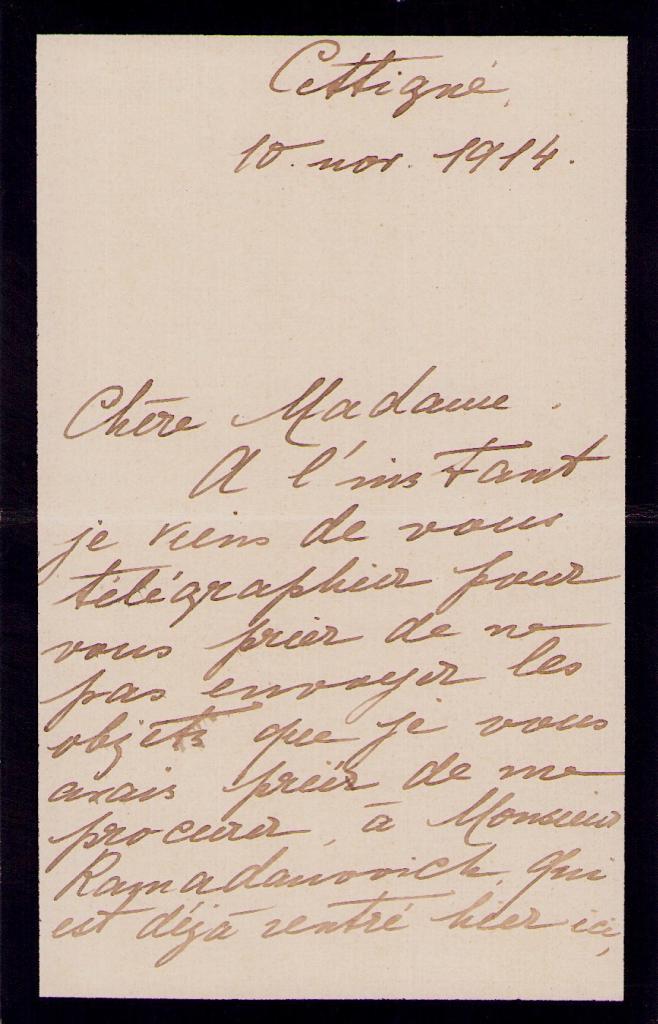 Cettigné,
10. nov. 1914.
Chère Madame.
A l'instant
je viens de vous
télégraphier pour
vous prier de ne
pas envoyer les
objets que je vous
avais priér de me
procurer, à Monsieur
Ramadanovich, qui
est déjà rentré hier ici,